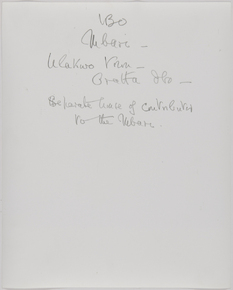 IBO
Mbari –
Ulakwo
Oratta Ibo –
Separate house of contributor
to the Mbari.